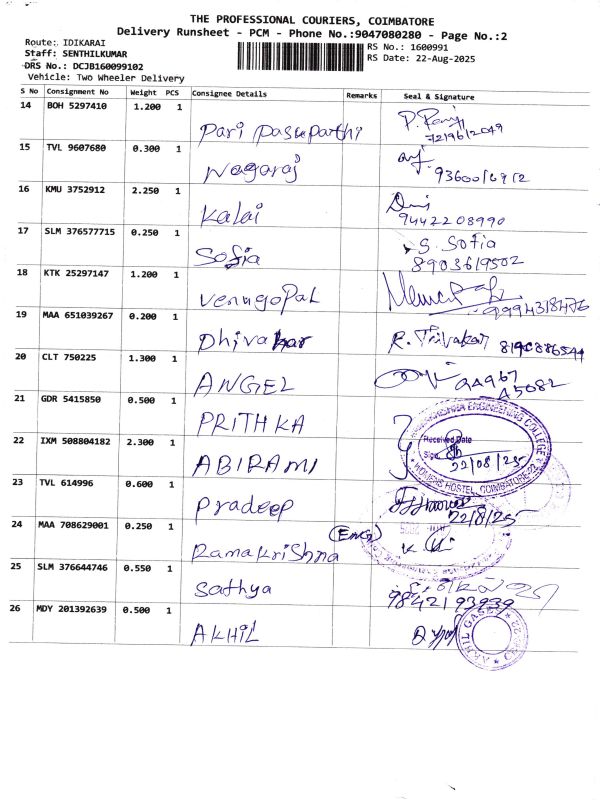 THE PROFESSIONAL COURIERS, COIMBATORE
Delivery Runsheet - PCM - Phone No.:9047080280 - Page No.:2
Route: IDIKARAI
Staff: SENTHILKUMAR
DRS No.: DCJB160099102
Vehicle: Two Wheeler Delivery
RS No.: 1600991
RS Date: 22-Aug-2025
S No Consignment No Weight PCS Consignee Details Remarks Seal & Signature
14 BOH 5297410 1.200 1
Pari Pasupathi
15 TVL 9607680 0.300 1
Nagaraj
16 KMU 3752912 2.250 1
Kalai 9442208990
17 SLM 376577715 0.250 1
Sofia S. Sofia
8903619502
18 KTK 25297147 1.200 1
Venugopal 9994318476
19 MAA 651039267 0.200 1
Dhivakar
20 CLT 750225 1.300 1
ANGEL
21 GDR 5415850 0.500 1
PRITHKA
22 IXM 508804182 2.300 1
ABIRAMI
ENGINEERING COLLEGE
Received Date
Sign
22/08/25
WOMENS HOSTEL, COIMBATORE-22
23 TVL 614996 0.600 1
Pradeep 22/8/25
24 MAA 708629001 0.250 1
Ramakrishna (Eng)
25 SLM 376644746 0.550 1
Sathya 9842193939
26 MDY 201392639 0.500 1
AKHIL
AKHIL GASES